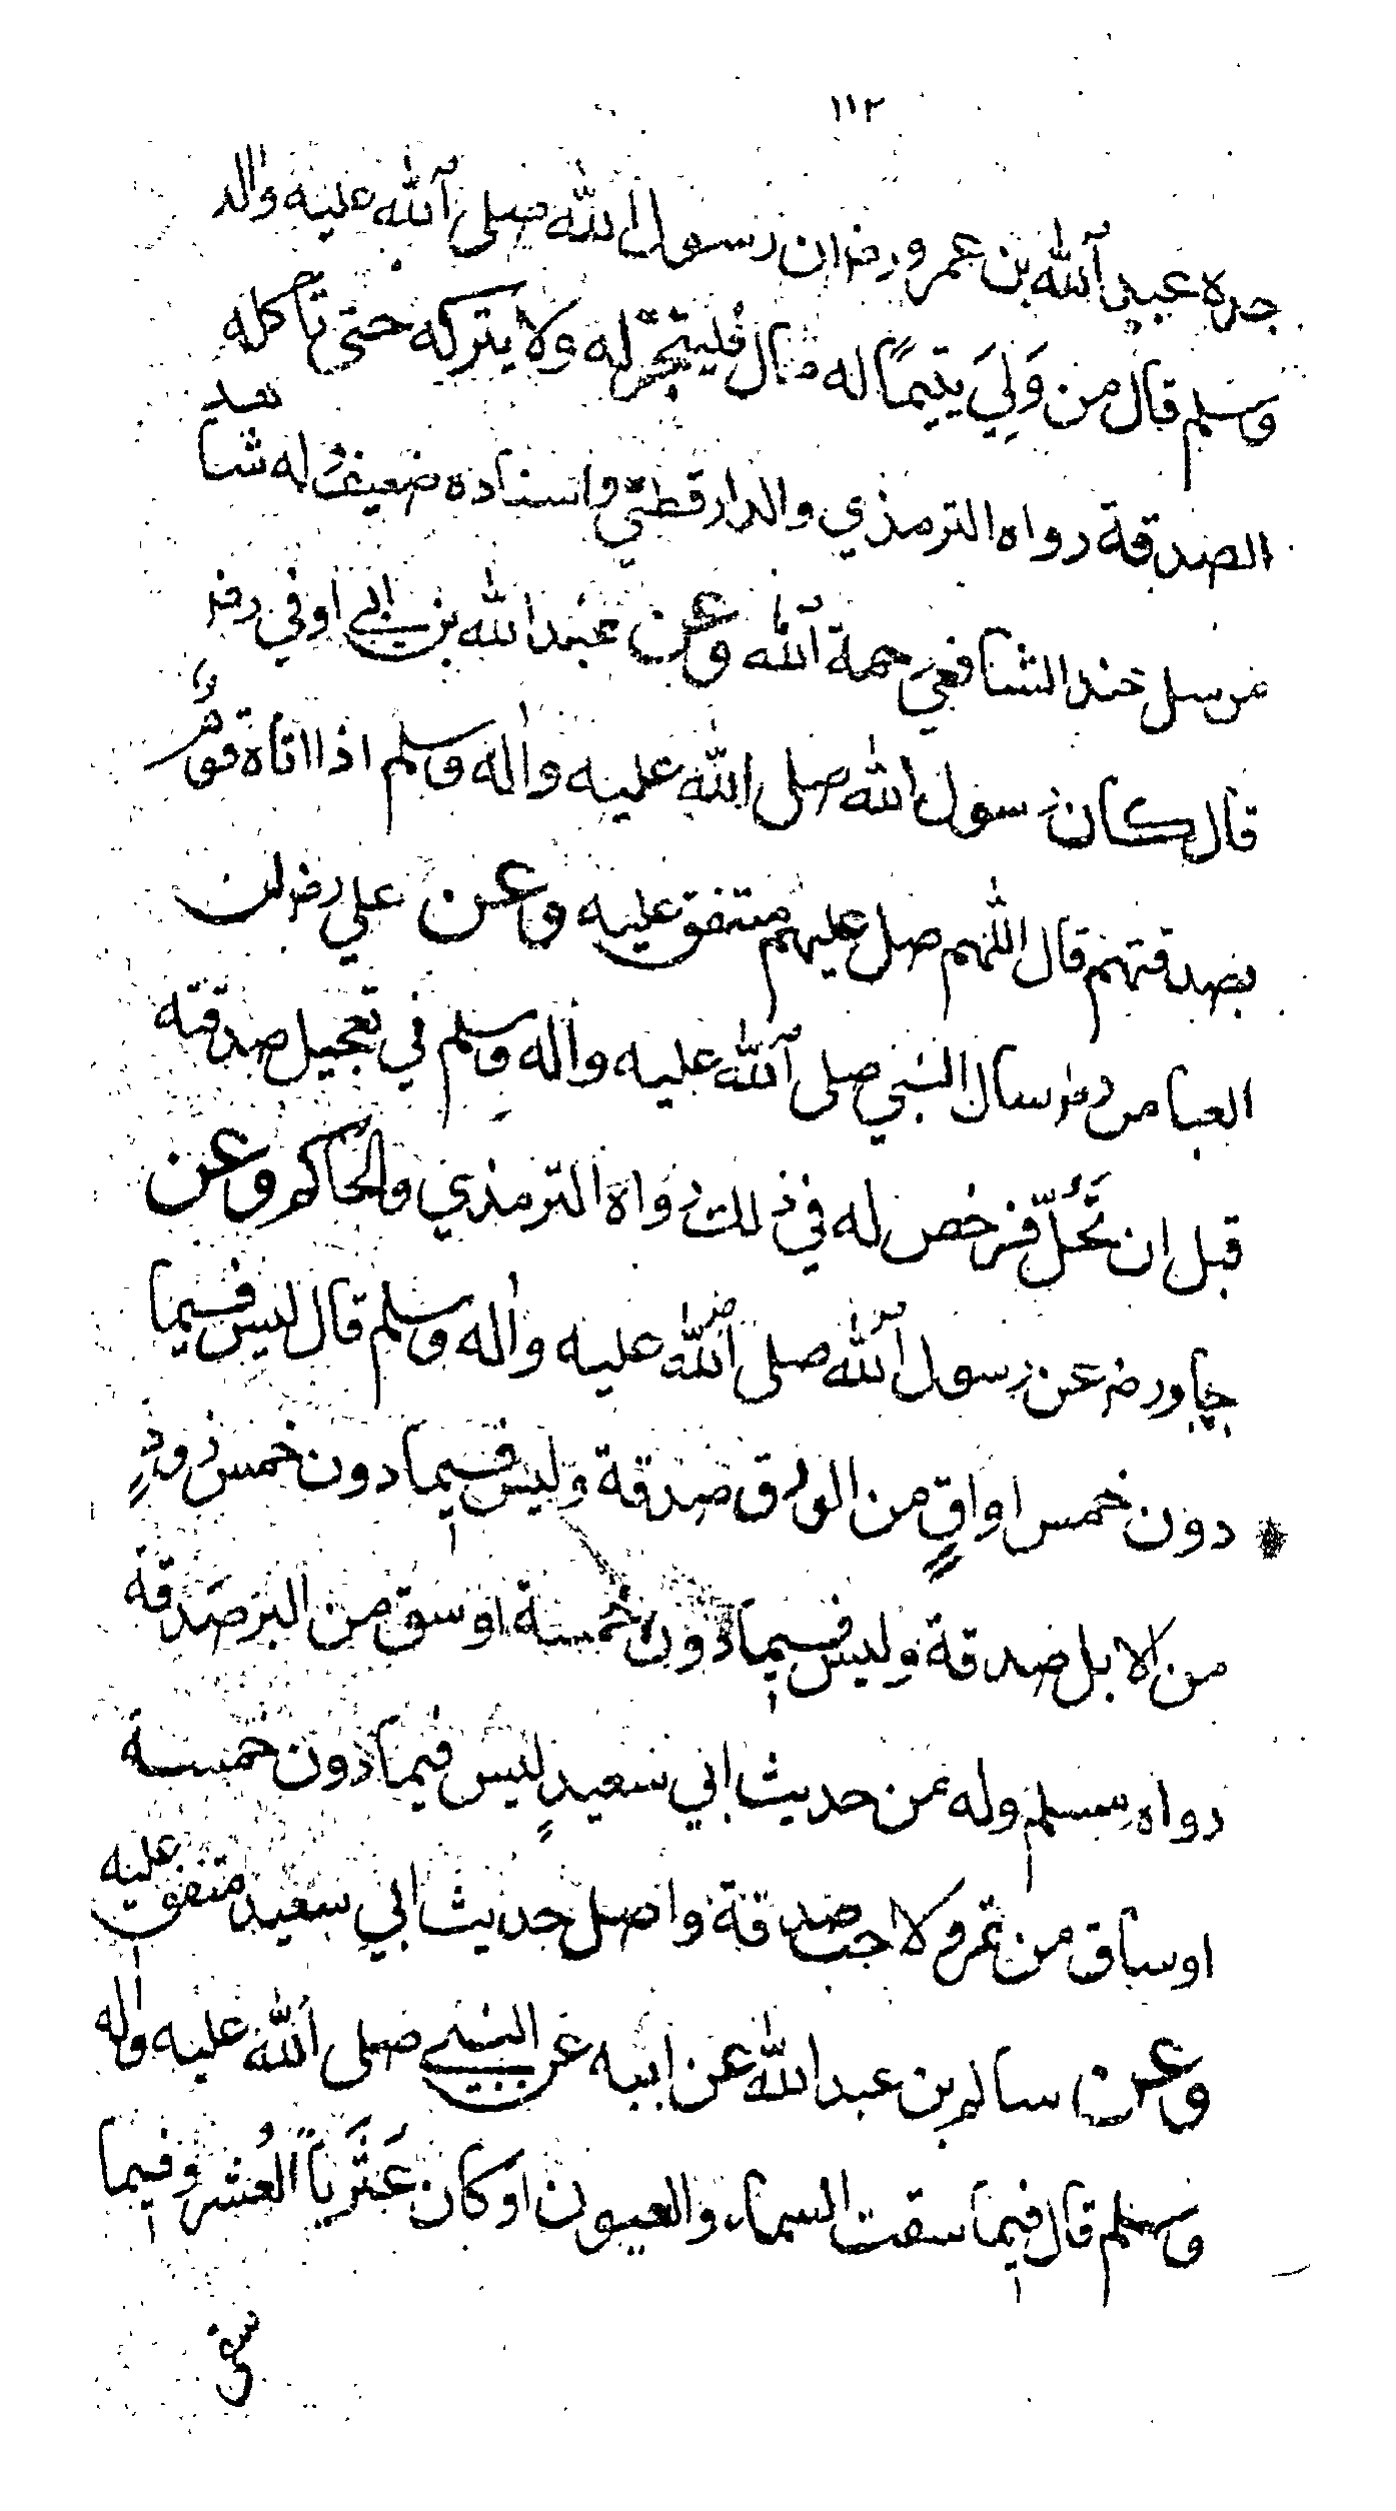 ١١٢
جده عبد الله بن عمرو رضر ان رسول الله صلى الله عليه واله
وسلم قال من وَلِيَ يتيمًا له مال فليتجر له ولا يتركه حتى تأكله
الصدقة رواه الترمذي والدارقطني واسناده ضعيف له شاهد
مرسل عند الشافعي رحمة الله وعن عبد الله بن ابي اوفي رضر
قال كان رسول الله صلى الله عليه واله وسلم اذا اتاه قومٌ
بصدقتهم قال اللهم صل عليهم متفق عليه وعن علي رضر ان
العباس رضر سال النبي صلى الله عليه واله وسلم في تعجيل صدقته
قبل ان تَحُلّ فرخص له في ذلك رواه الترمذي والحاكم وعن
جابر رضر عن رسول الله صلى الله عليه واله وسلم قال ليس فيما
دون خمس اواقٍ من الورق صدقة وليس فيما دون خمس ذودٍ
من الابل صدقة وليس فيما دون خمسة اوسق من التمر صدقة
رواه مسلم وله من حديث ابي سعيدٍ ليس فيما دون خمسة
اوساق من تمر ولا حب صدقة واصل حديث ابي سعيد متفق عليه
وعن سالم بن عبد الله عن ابيه عن النبي صلى الله عليه واله
وسلم قال فيما سقت السماء والعيون او كان عَثَرياً العُشر وفيما
سقي